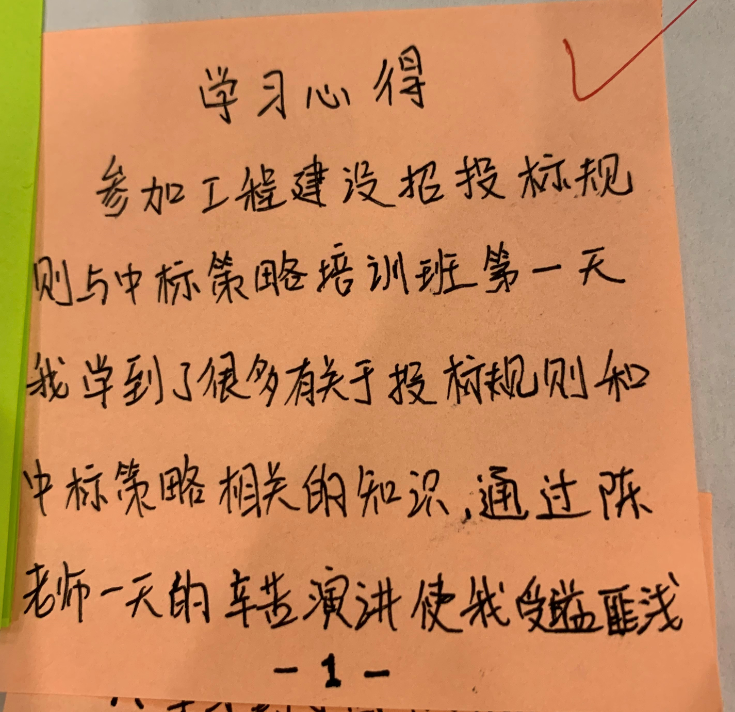 学习心得
参加工程建设招投标规
则与中标策略培训班第一天
我学到了很多有关于投标规则和
中标策略相关的知识,通过陈
老师一天的辛苦演讲使我受益匪浅
- 1 -